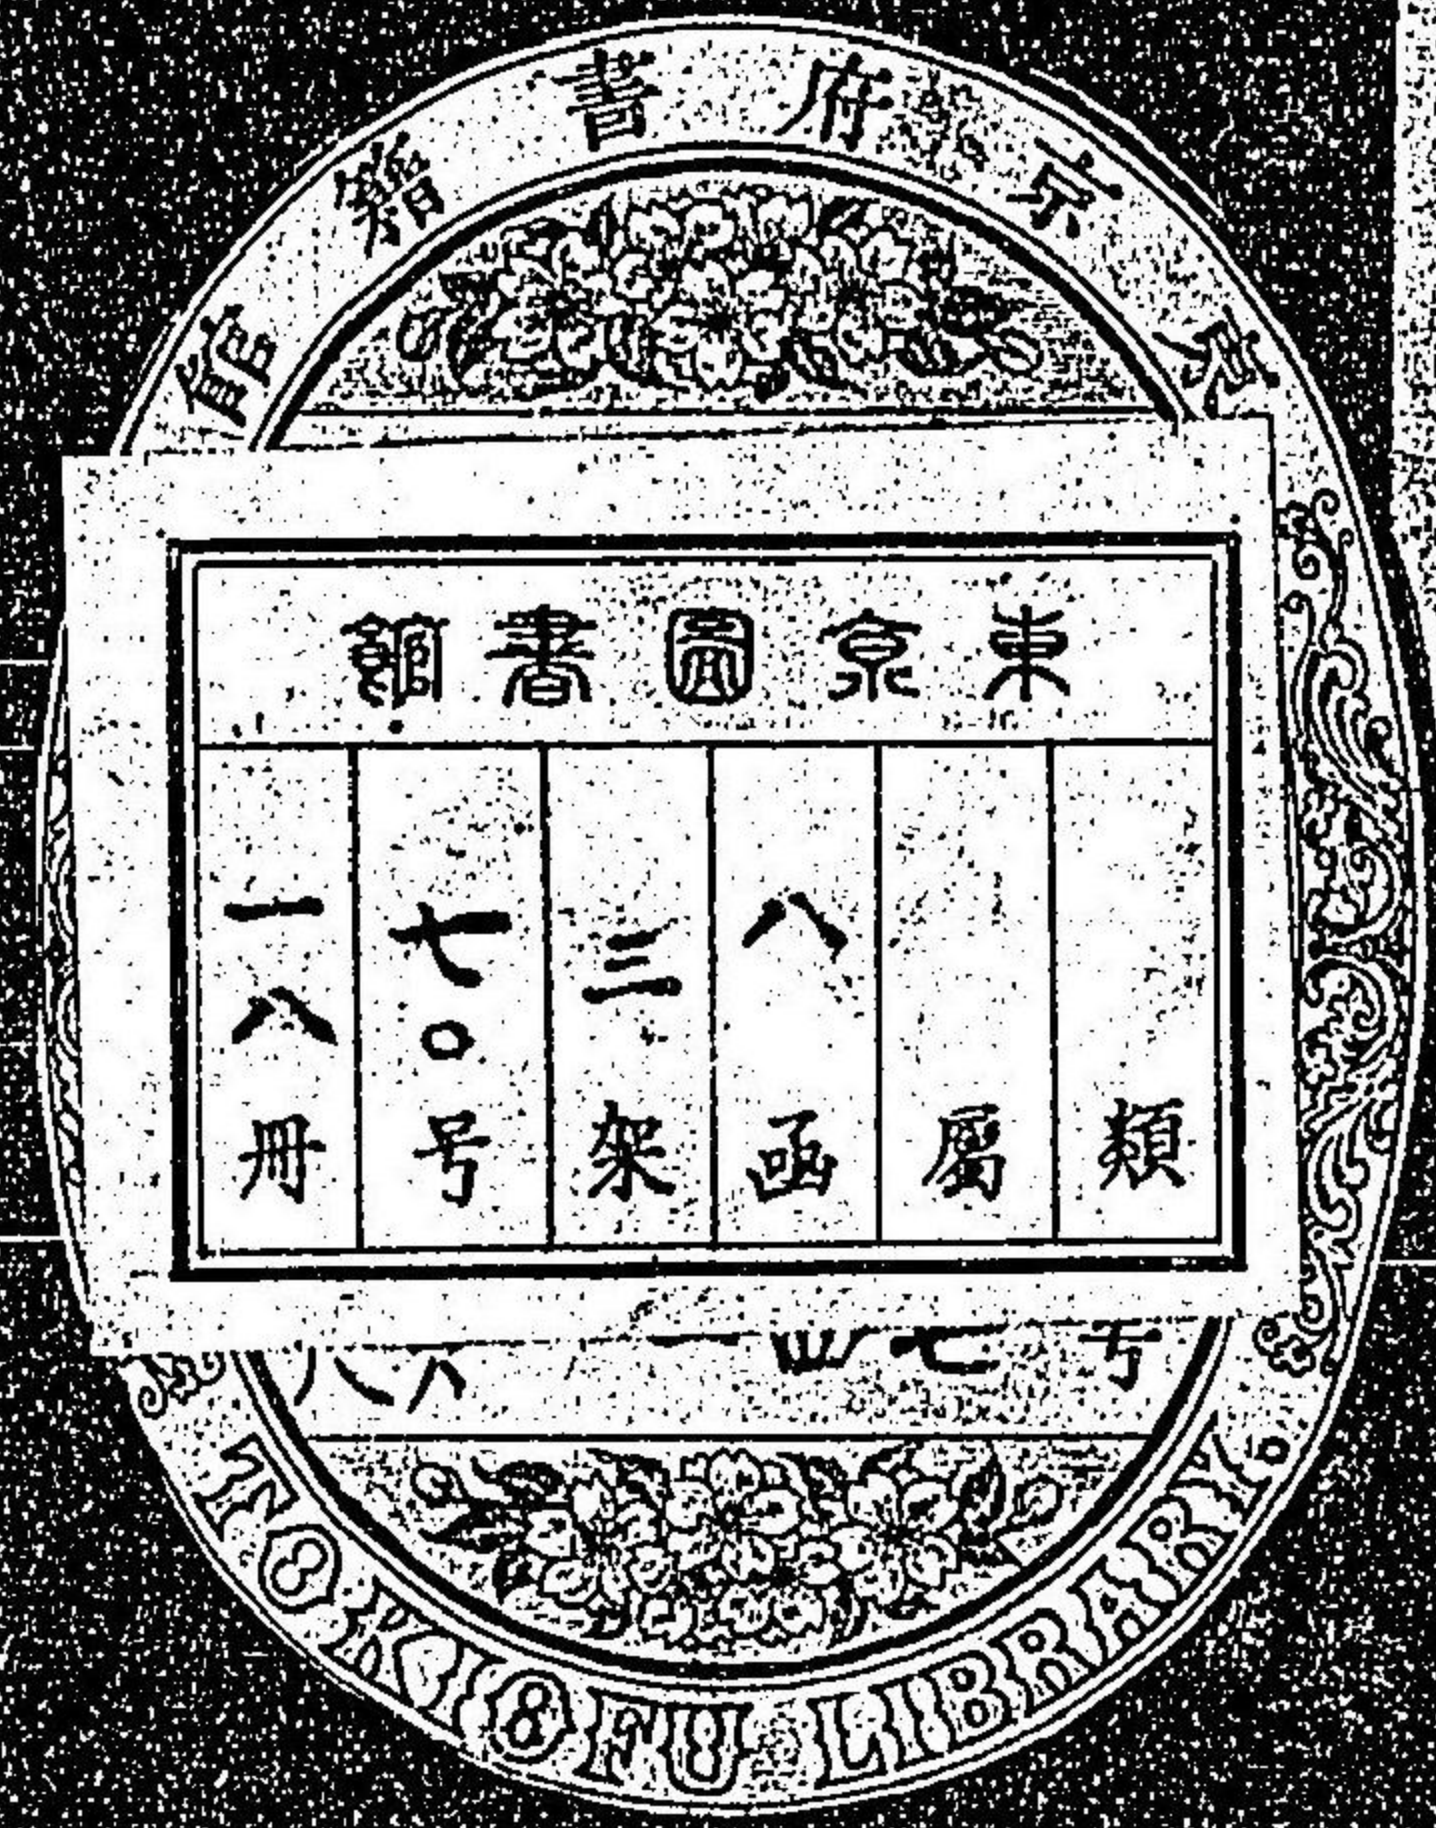 東京府書籍館
東京圖書館
類
屬
八函
三架
七〇号
一八冊
TOKIO FU LIBRARY.